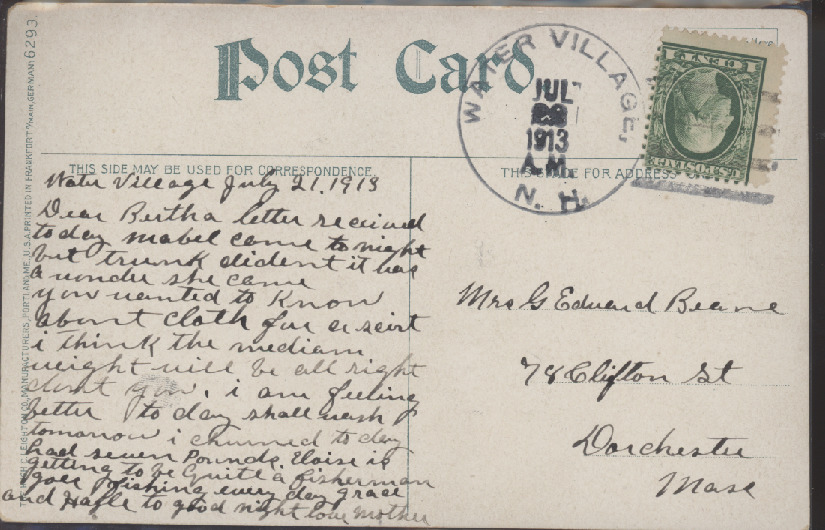 Post Card
WATER VILLAGE,
JUL
1913
A.M.
N. H.
6293.
THIS SIDE MAY BE USED FOR CORRESPONDENCE.
THIS SIDE FOR ADDRESS
Water Village July 21, 1913
Dear Bertha letter received
to day mabel came to night
but trunk dident it was
a wonder she came
you wanted to know
about cloth for a scirt
i think the mediam
weight will be all right
dont you, i am feeling
better to day shall wash
tomorrow i churned to day
had seven Pounds. Eloise is
getting to be quite a fisherman
goes fishing every day grace
and to good night love Mother
Mrs G Edward Beane
78 Clifton St
Dorchester
Mass